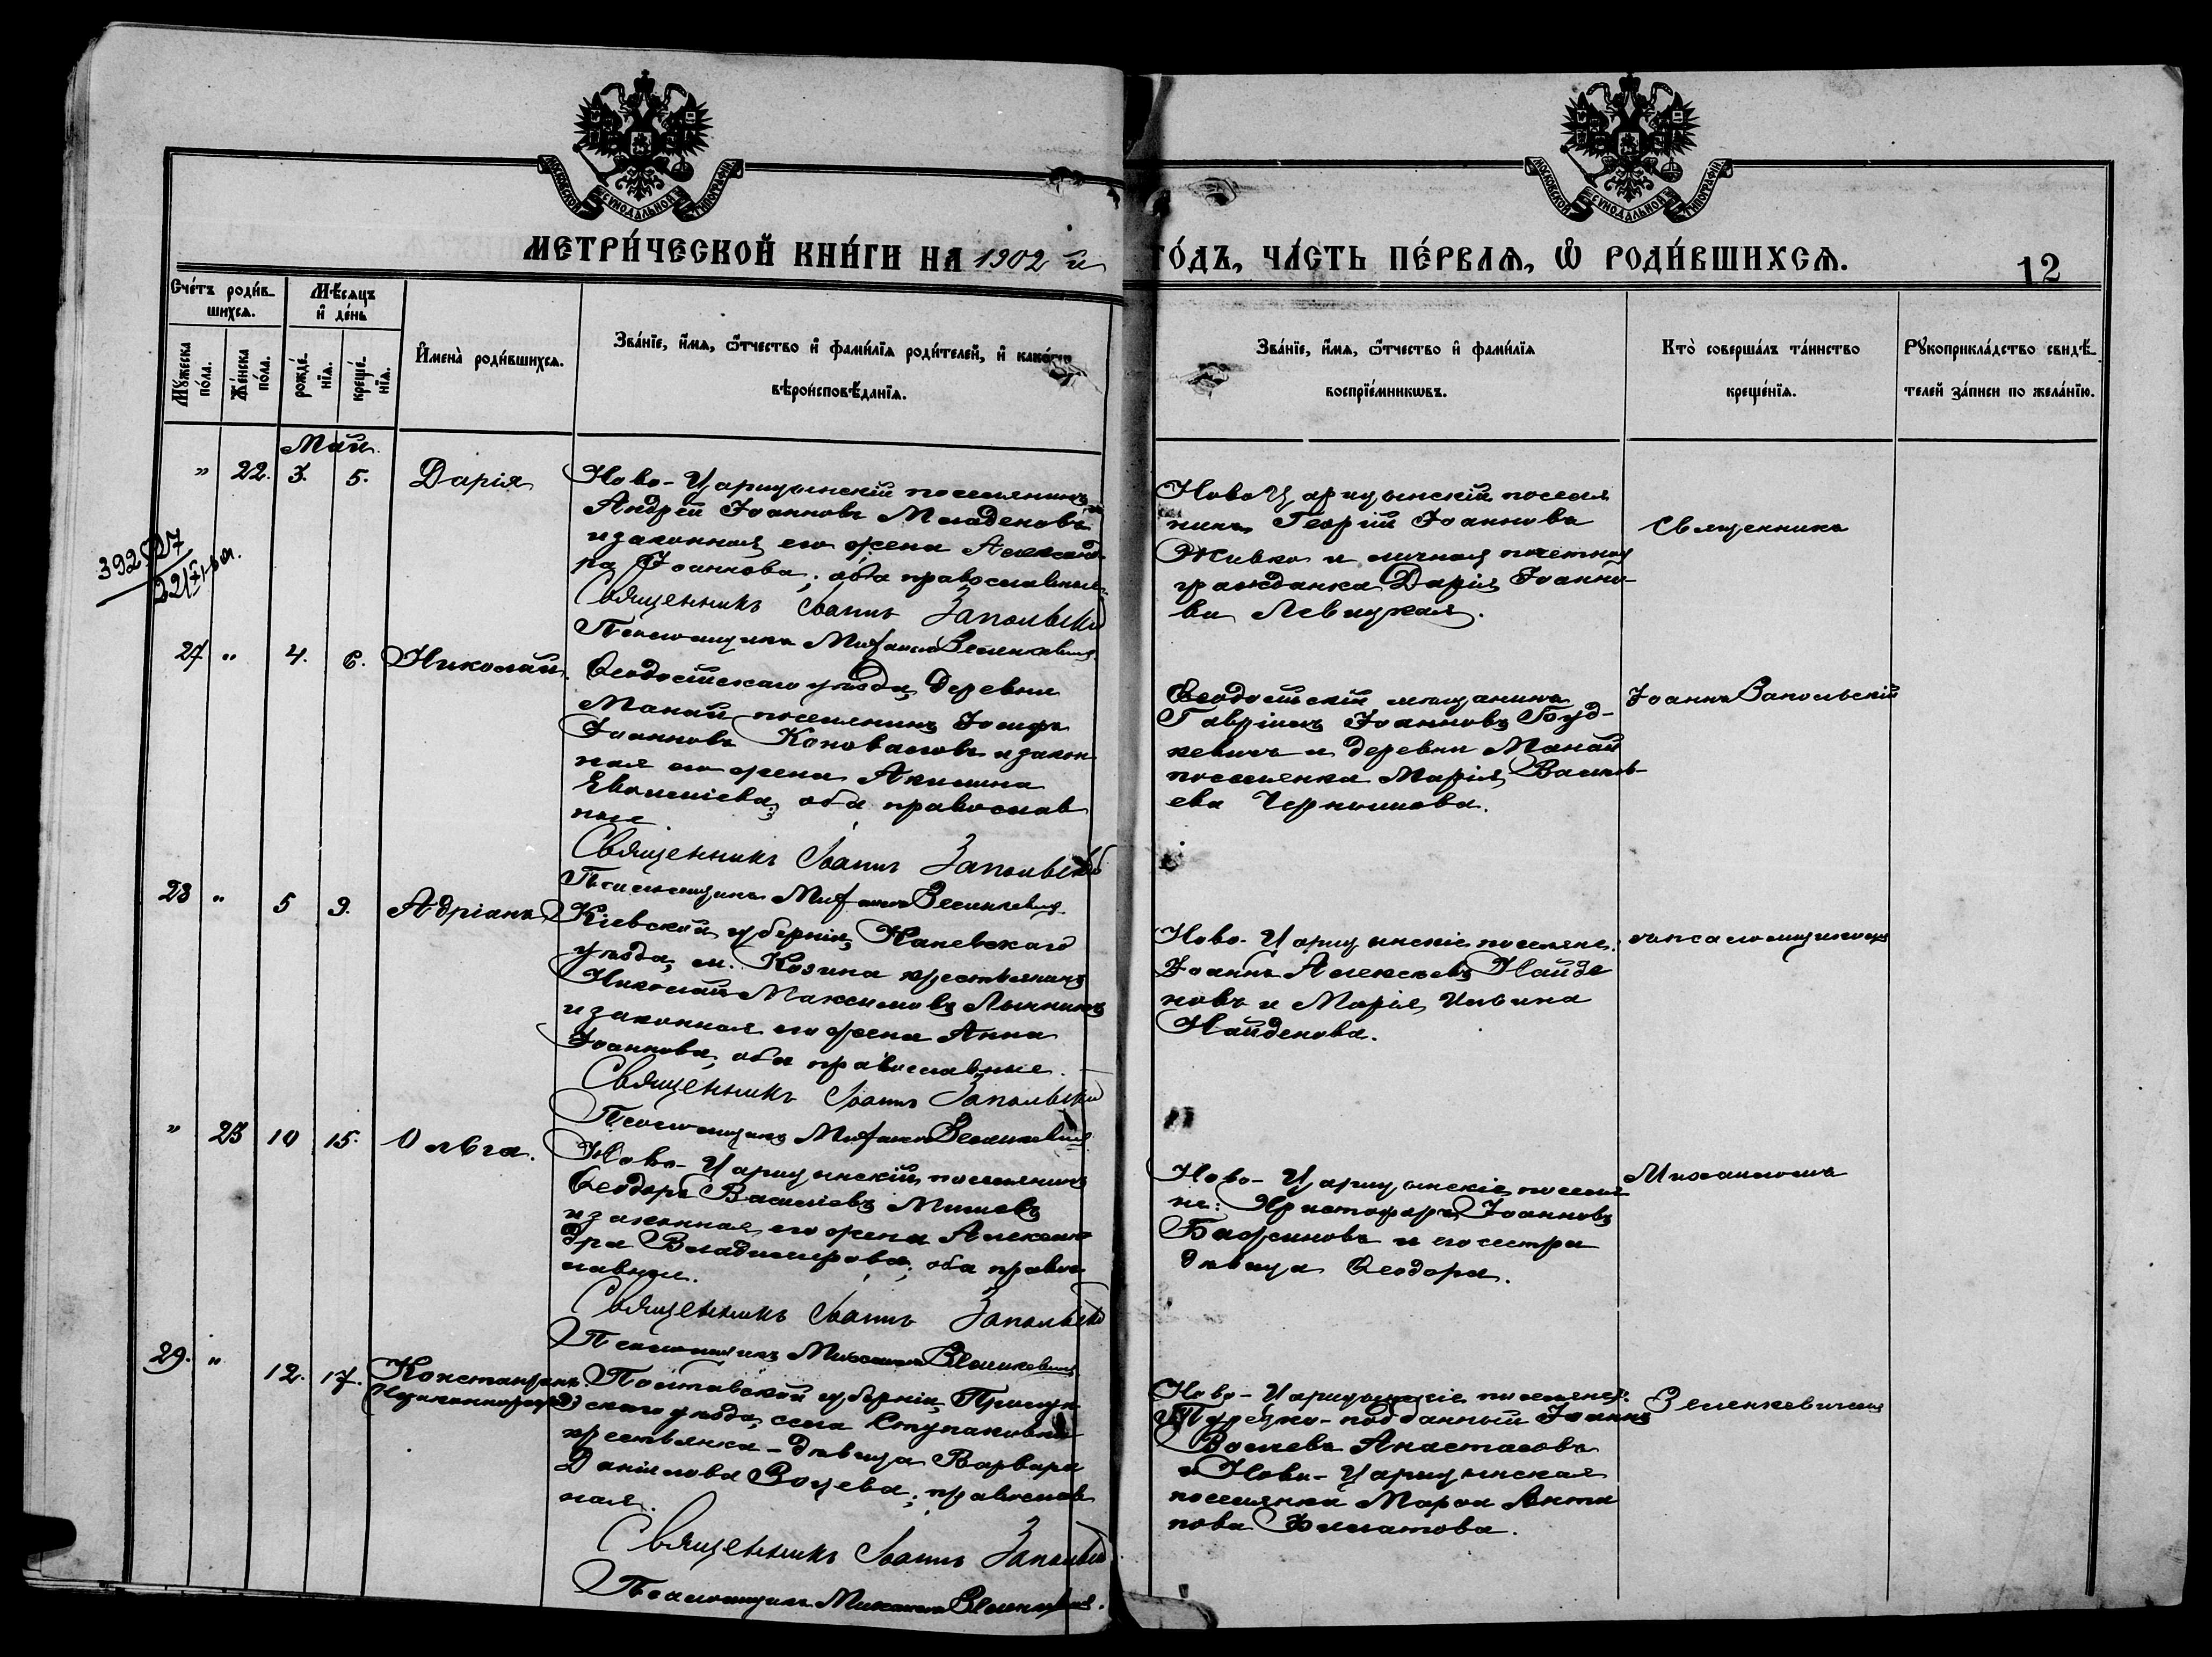 МОСКОВСКОЙ СѴНОДАЛЬНОЙ ТИПОГРАФІИ.
МОСКОВСКОЙ СѴНОДАЛЬНОЙ ТИПОГРАФІИ.
МЕТРИ́ЧЕСКОЙ КНИ́ГИ НА 1902 й
ГО́ДЪ, ЧА́СТЬ ПЕ́РВАѦ, Ѡ РОДИ́ВШИХСѦ.
12
Сче́тъ роди́в-
шихсѧ.
Мѣ́сѧцъ
и де́нь
Мꙋжеска
по́ла.
Же́нска
по́ла.
рожде́-
нїѧ.
креще́-
нїѧ.
Имена̀ роди́вшихсѧ.
Зва́нїе, и́мѧ, ѿтчество и фами́лїѧ роди́телей, и како́гѡ
вѣроисповѣ́данїѧ.
Зва́нїе, и́мѧ, ѿтчество и фами́лїѧ
воспрїе́мникѡвъ.
Кто̀ соверша́лъ та́инство
креще́нїѧ.
Рꙋкоприкла́дство свидѣ́-
телей за́писи по жела́нїю.
Май.
" 22. 3. 5. Дарія
Ново-Царицынскій поселянинъ
Андрей Іоанновъ Младеновъ
и законная его жена Александ-
ра Іоаннова, оба православные.
Священникъ Іоаннъ Запольскій
Псаломщикъ Михаилъ Зеленкевичъ.
Ново Царицынскій поселя
нинъ Георгій Іоанновъ
Живко и личная почетная
гражданка Дарія Іоанно-
ва Левицкая.
Священникъ
392 27
27 " 4. 6. Николай.
Ѳеодосійскаго уѣзда, деревни
Манай поселянинъ Іосифъ
Іоанновъ Коноваловъ и закон
ная его жена Акилина
Евфиміева, оба православ
ные
Священникъ Іоаннъ Запольскій
Псаломщикъ Михаилъ Зеленкевичъ.
Ѳеодосійскій мѣщанинъ
Гавріилъ Іоанновъ Гуд-
кевичъ и деревни Манай
поселенка Марія Василь-
ева Чернышова.
Іоаннъ Запольскій
28 " 5 9. Адріанъ
Кіевской губерніи, Каневскаго
уѣзда, м. Козина крестьянинъ
Николай Максимовъ
и законная его жена Анна
Іоаннова, оба православные.
Священникъ Іоаннъ Запольскій
Псаломщикъ Михаилъ Зеленкевичъ
Ново-Царицынскіе поселяне:
Іоаннъ Алексѣевъ Найде
новъ и Марія Ильина
Найденова.
съ псаломщикомъ
" 23 10 15. Ольга.
Ново-Царицынскій поселянинъ
Ѳеодоръ Василіевъ
и законная его жена Алексан
дра Владимирова, оба правос
лавные.
Священникъ Іоаннъ Запольскій
Псаломщикъ Михаилъ Зеленкевичъ
Ново-Царицынскіе поселя
не: Христофоръ Іоанновъ
Бажановъ и его сестра
дѣвица Ѳеодора.
Михаиломъ
29. " 12. 17. Константинъ.
(Незаконнорожд)
Полтавской губерніи, Прилук
скаго уѣзда, села Ступаковки
крестьянка-дѣвица Варвара
Даніилова Воцева, православ
ная.
Священникъ Іоаннъ Запольскій
Псаломщикъ Михаилъ Зеленкевичъ.
Ново-Царицынскіе поселяне:
Турецко-подданный Іоаннъ
Волчевъ Анастасовъ
и Ново-Царицынская
поселянка Марѳа Анти
пова Филатова.
Зеленкевичемъ